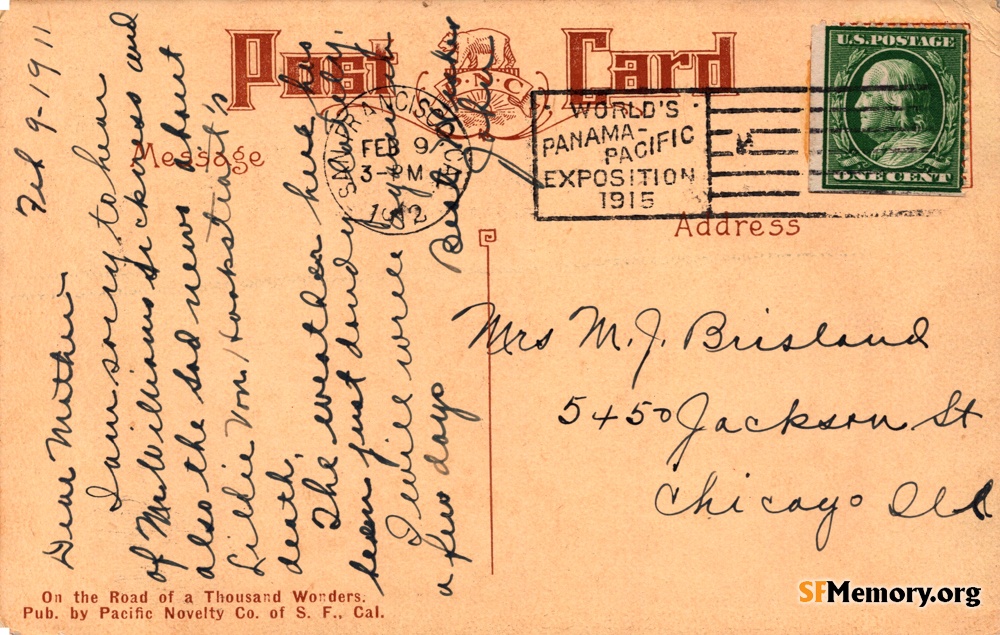 Post Card
P.N.C.
Message
Address
SAN FRANCISCO, CAL.
FEB 9
3-PM
1912
WORLD'S
PANAMA-
PACIFIC
EXPOSITION
1915
U.S. POSTAGE
ONE CENT
Feb 9-1911
Dear Mother-
I am sorry to hear
of Mr. Williams sickness and
also the sad news about
Lillie Von Hookstrat's
death.
The weather here has
been just dandy lately.
I will write again in
a few days
Best wishes
Mrs M. J. Brisland
5450 Jackson St
Chicago Ill
On the Road of a Thousand Wonders.
Pub. by Pacific Novelty Co. of S. F., Cal.
SFMemory.org